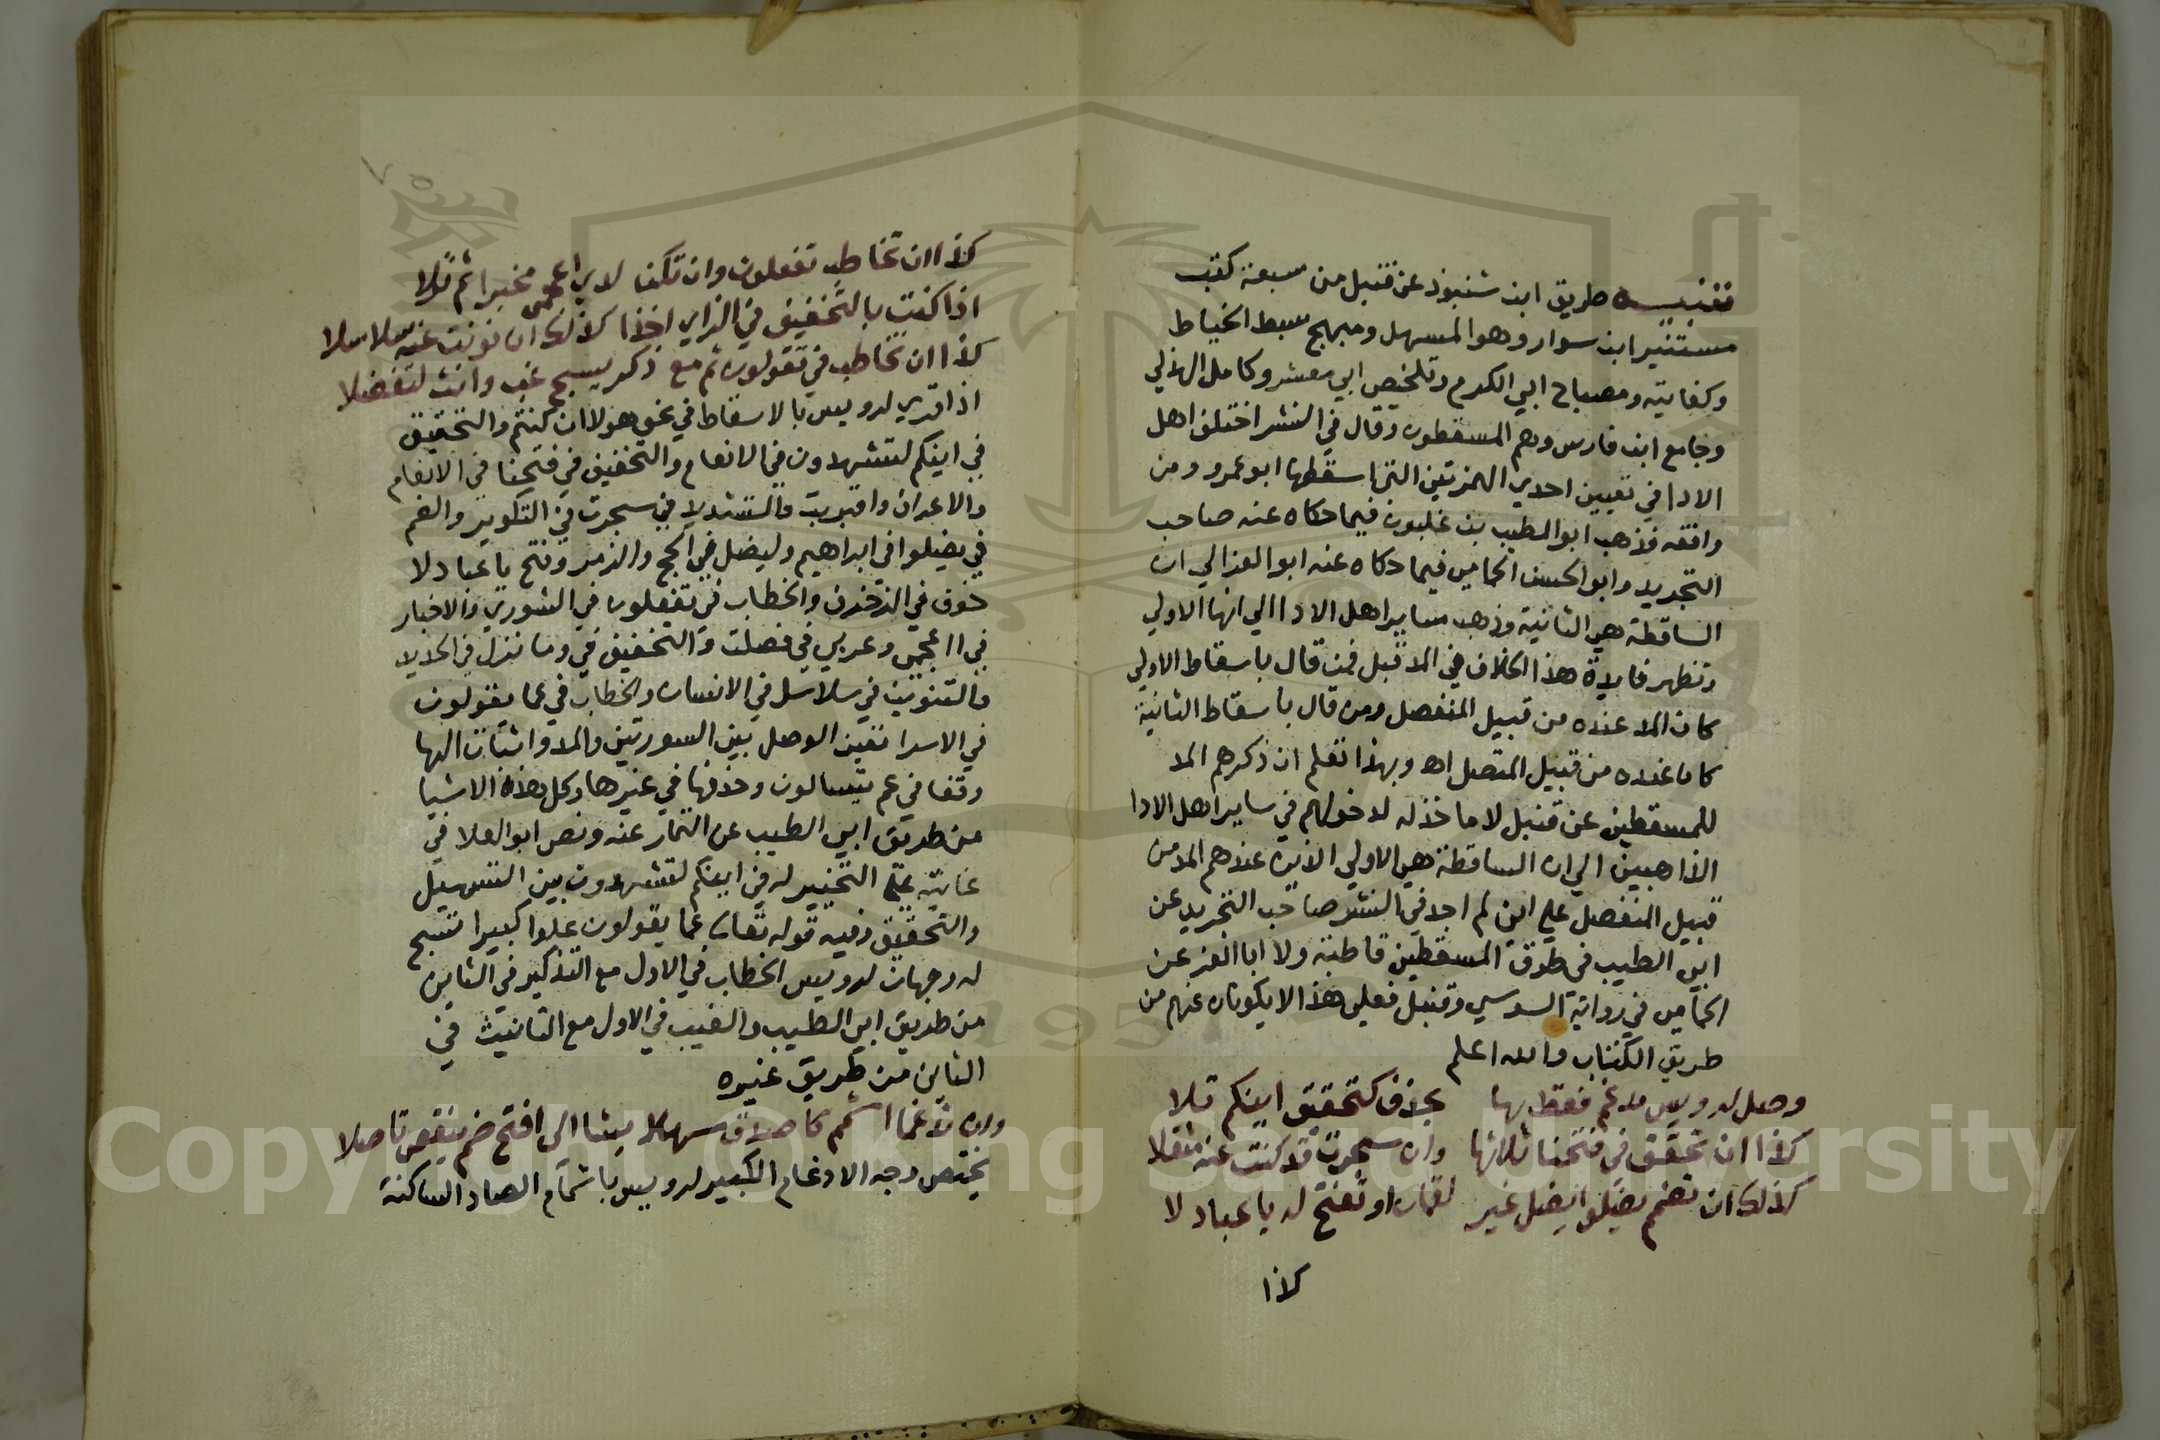 تنبيه طريق ابن شنبوذ عن قنبل من سبعة كتب
مستنير ابن سوار وهو المسهل ومبهج سبط الخياط
وكفايته ومصباح ابي الكرم وتلخيص ابي معشر وكامل الهذلي
وجامع ابن فارس وهم المسقطون وقال في النشر اختلف اهل
الادا في تعيين احدي الهمزتين التي اسقطها ابو عمرو ومن
وافقه فذهب ابو الطيب بن غلبون فيما حكاه عنه صاحب
التجريد وابو الحسن الحمامي فيما حكاه عنه ابو العز الي ان
الساقطة هي الثانية وذهب ساير اهل الادا الي انها الاولي
وتظهر فايدة هذا الخلاف في المد قبل فمن قال باسقاط الاولي
كان المد عنده من قبيل المنفصل ومن قال باسقاط الثانية
كان عنده من قبيل المتصل اه وبهذا تعلم ان ذكرهم المد
للمسقطين عن قنبل لا ماخذ له لدخولهم في ساير اهل الادا
الذاهبين الي ان الساقطة هي الاولي الاتية عندهم المد من
قبيل المنفصل علي اني لم اجد في النشر صاحب التجريد عن
ابي الطيب في طرق المسقطين قاطبة ولا ابا العز عن
الحمامي في رواية السوسي وقنبل فعلي هذا لا يكونان عنهم من
طريق الكتاب والله اعلم
وصل لرويس مدغم فقط بها بحذف كتحقيق اينكم تلا
كذا ان تحقق في فتحنا ثلاثها وان سجرت قد كنت عنه مثقلا
كذلك ان تضم يضلوا يضل غير لقمان او تفتح له يا عباد لا
كذا
كذا ان تخاطب تفعلون وان تكن لدي اعجمي مخبرا ثم نزلا
اذا كنت بالتخفيف في الزاي اخذا كذلك ان نونت عنه سلاسلا
كذا ان تخاطب في تقولون ثم مع ذكر يسبح غب وانث لتفضلا
اذا قري لرويس بالاسقاط في نحو هولا ان كنتم والتحقيق
في اينكم لتشهدون في الانعام والتخفيف في فتحنا في الانعام
والاعراف واقتربت والتشديد في سجرت في التكوير والضم
في يضلوا في ابراهيم وليضل في الحج والزمر وفتح يا عباد لا
خوف في الزخرف والخطاب في تفعلون في الشوري والاخبار
في ااعجمي وعربي في فصلت والتخفيف في وما نزل في الحديد
والتنوين في سلاسل في الانسان والخطاب في عما يقولون
في الاسرا تعين الوصل بين السورتين والمد واثبات الها
وقفا في عم يتسالون وحذفها في غيرها وكل هذه الاشيا
من طريق ابي الطيب عن التمار عنه ونص ابو العلا في
غايته علي التخيير له في اينكم لتشهدون بين التسهيل
والتحقيق وفيه قوله تعالي عما يقولون علوا كبيرا تسبح
له وجهان لرويس الخطاب في الاول مع التذكير في الثاني
من طريق ابي الطيب والغيب في الاول مع التانيث في
الثاني من طريق غيره
وان تدغما اشمم كاصدق سهلا يشا الي افتح ضم ينقص تاصلا
يختص وجه الادغام الكبير لرويس باشمام الصاد الساكنة
Copyright © King Saud University
1957